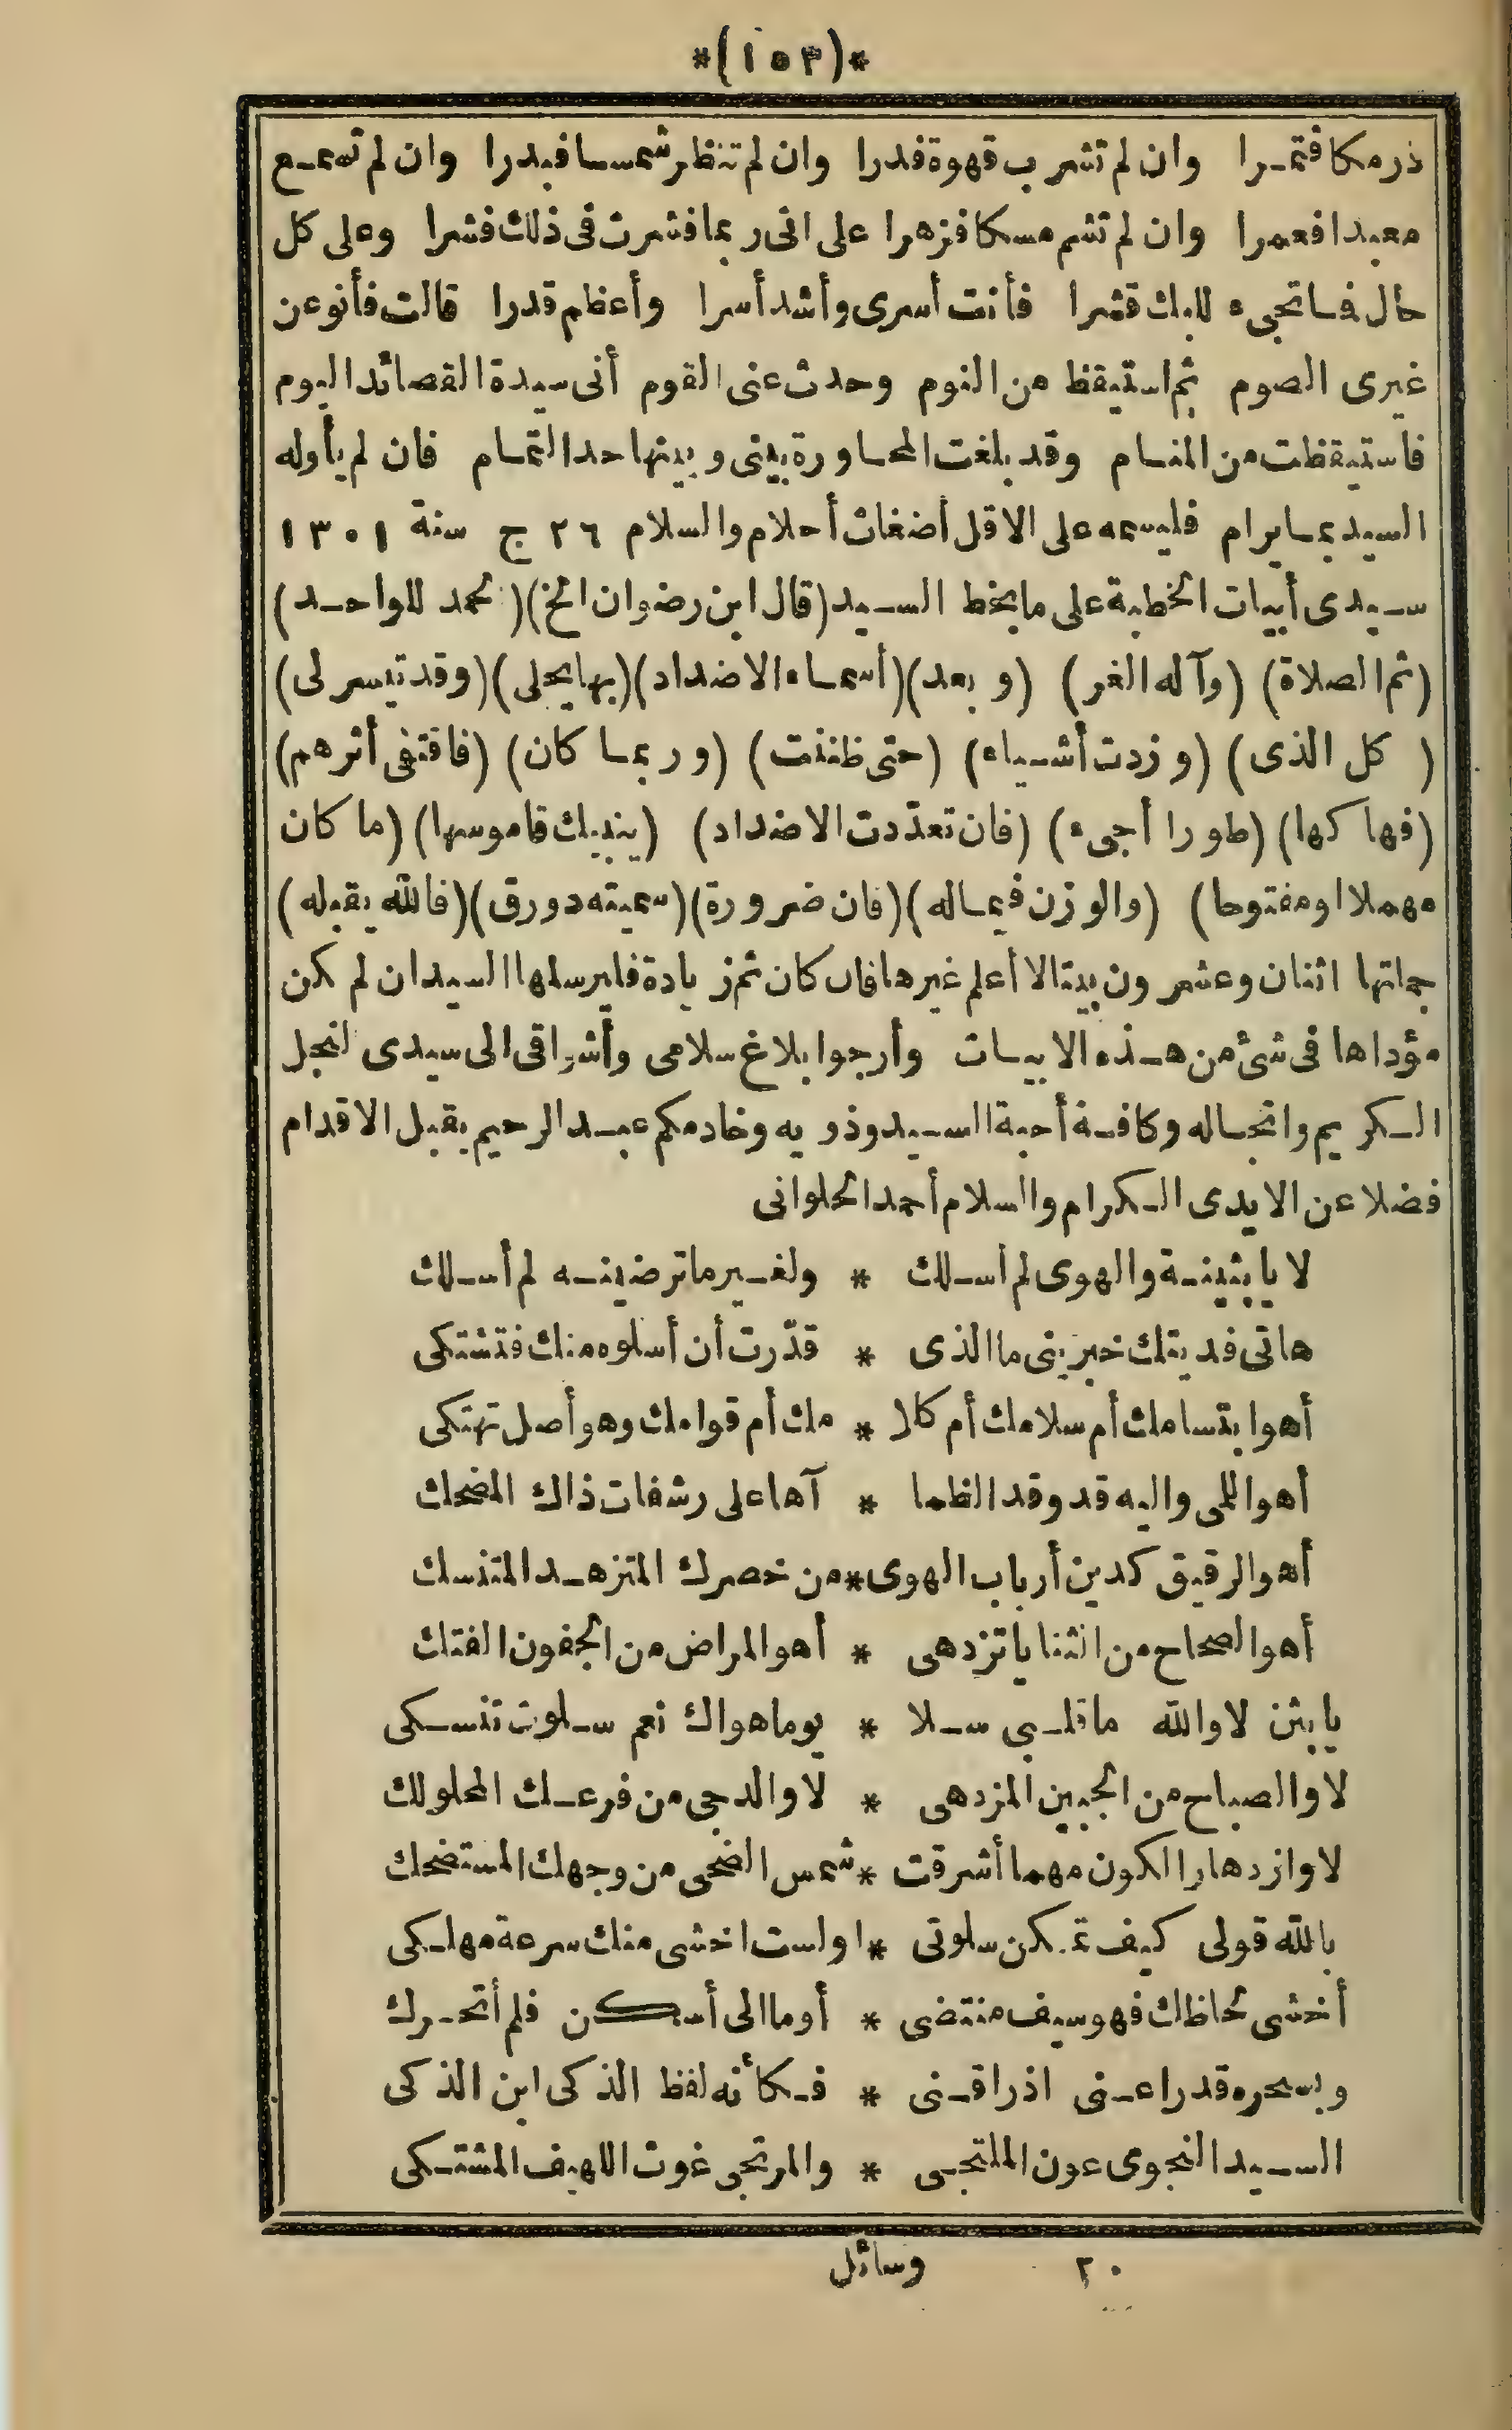 *(١٥٣)*
ذرمكا فتمرا وان لم تشرب قهوة فدرا وان لم تنظر شمسا فبدرا وان لم تسمع
معبدا فعمرا وان لم تشم مسكا فزهرا على انى ربما فشرت فى ذلك فشرا وعلى كل
حال فما تجىء لابك قشرا فأنت أسرى وأشد أسرا وأعظم قدرا قالت فأنوعن
غيرى الصوم ثم استيقظ من النوم وحدث عنى القوم أنى سيدة القصائد اليوم
فاستيقظت من المنام وقد بلغت المحاورة بينى وبينها حد التمام فان لم يأوله
السيد بما يرام فليسمه على الاقل أضغاث أحلام والسلام ٢٦ ج سنة ١٣٠١
سيدى أبيات الخطبة على ما بخط السيد (قال ابن رضوان الخ) (نحمد للواحد)
(ثم الصلاة) (وآله الغر) (وبعد) (أسماء الاضداد) (بها يحلى) (وقد تيسر لى)
(كل الذى) (وزدت أشياء) (حتى ظننت) (وربما كان) (فاقتفى أثرهم)
(فهاكها) (طورا أجىء) (فان تعدّدت الاضداد) (ينبيك قاموسها) (ما كان
مهملا او مفتوحا) (والوزن فيماله) (فان ضرورة) (سميته دورق) (فالله يقبله)
جملتها اثنان وعشرون بيتا لا أعلم غيرها فان كان ثم زيادة فليرسلها السيد ان لم كن
مؤداها فى شئ من هذه الابيات وأرجو ابلاغ سلامى وأشواقى الى سيدى النجل
الكريم وانجاله وكافة أحبة السيد وذويه وخادمكم عبد الرحيم يقبل الاقدام
فضلا عن الايدى الكرام والسلام أحمد الحلوانى
لا يا بثينة والهوى لم أسلك * ولغير ما ترضينه لم أسلك
هاتى فديتك خبرينى ما الذى * قدّرت أن أسلوه منك فتشتكى
أهو ابتسامك أم سلامك أم كلا * مك أم قوامك وهو أصل تهتكى
أهو اللمى واليه قد وقد الظما * آها على رشفات ذاك المضحك
أهو الرقيق كدين أرباب الهوى * من خصرك المتزهد المتنسك
أهو الصحاح من الثنايا تزدهى * أهو المراض من الجفون الفتك
يا بثن لا والله ما قلبى سلا * يوما هواك نعم سلوت تنسكى
لا والصباح من الجبين المزدهى * لا والدجى من فرعك المحلولك
لا وازدهار الكون مهما أشرقت * شمس الضحى من وجهك المستضحك
بالله قولى كيف تمكن سلوتى * اولست اخشى منك سرعة مهلكى
أخشى لحاظك فهو سيف منتضى * أومالى أسكن فلم أتحرك
وبسحره قد راعنى اذ راقنى * فكأنه لفظ الذكى ابن الذكى
السيد النجوى عون الملتجى * والمرتجى غوث اللهيف المشتكى
٢٠ وسائل